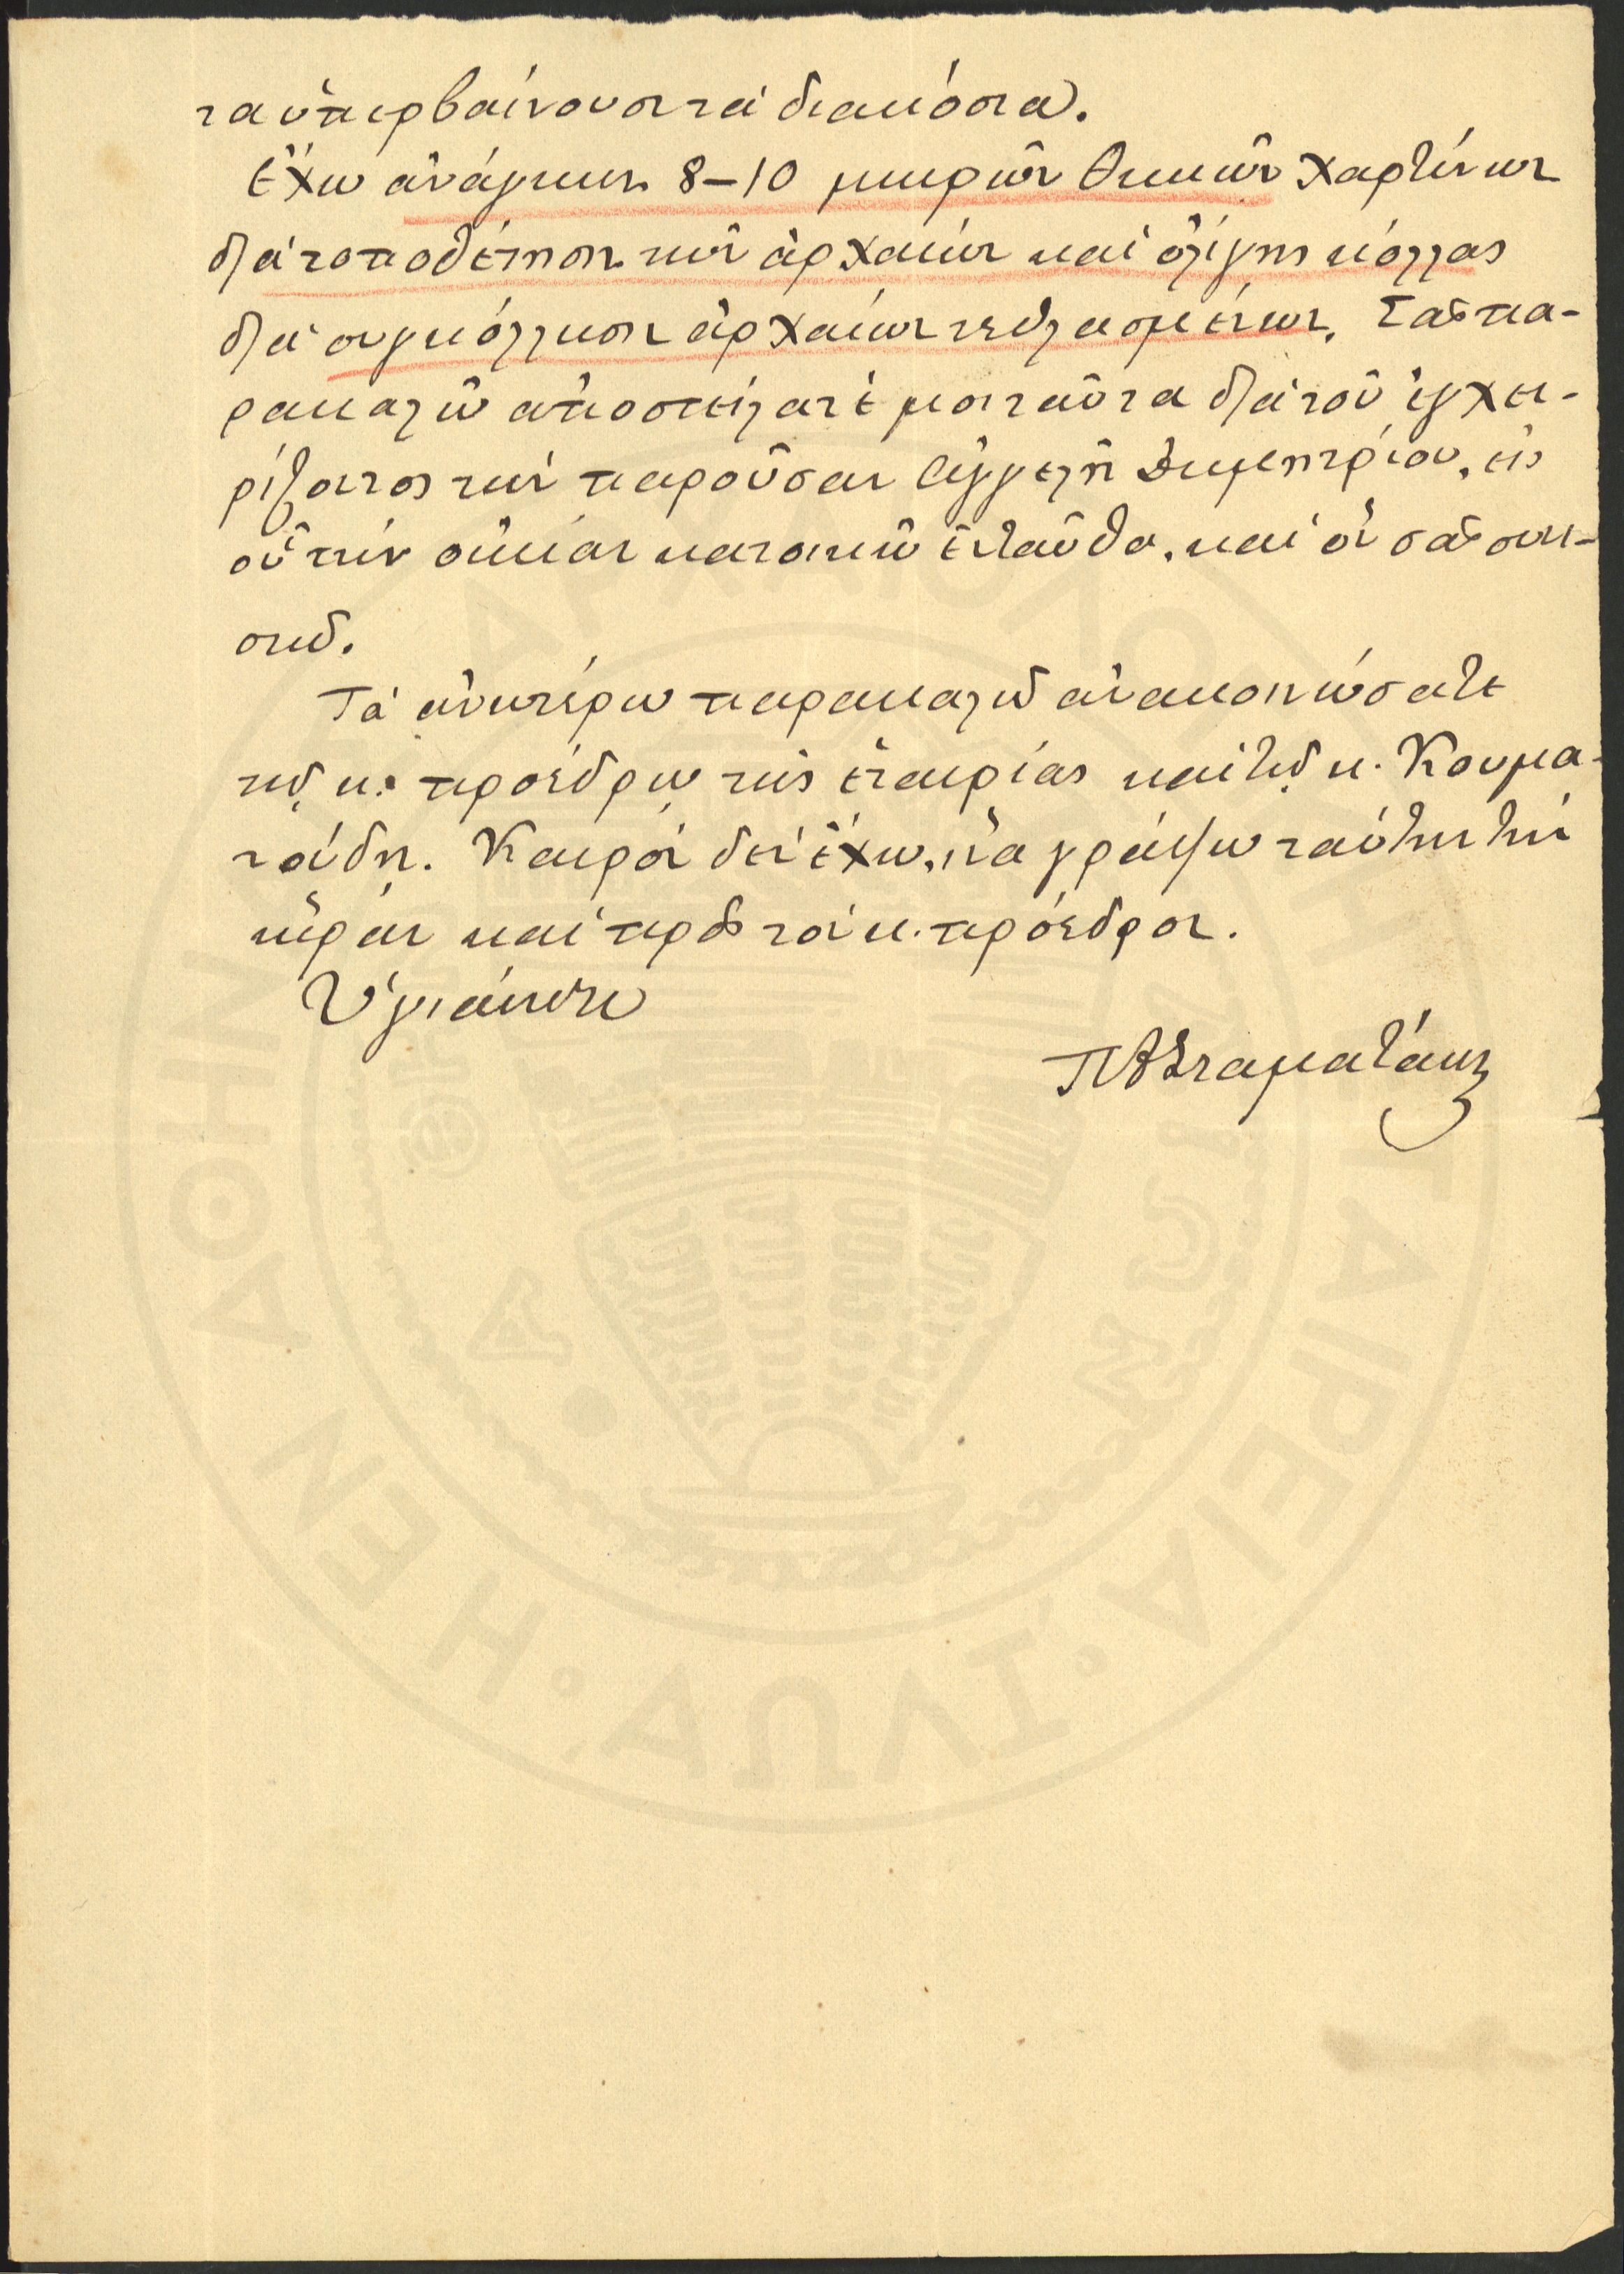 τα ὑπερβαίνουσι τὰ διακόσια.
Ἔχω ἀνάγκην 8–10 μικρῶν θηκῶν χαρτίνων
διὰ τοποθέτησιν τῶν ἀρχαίων καὶ ὀλίγης κόλλας
διὰ συγκόλλησιν ἀρχαίων τεθλασμένων. Σᾶς πα-
ρακαλῶ ἀποστείλατέ μοι ταῦτα διὰ τοῦ ἐγχει-
ρίζοντος τὴν παροῦσαν Ἀγγελῆ Δημητρίου, εἰς
οὗ τὴν οἰκίαν κατοικῶ ἐνταῦθα, καὶ ὃν σᾶς συνι-
στῶ.
Τὰ ἀνωτέρω παρακαλῶ ἀνακοινώσατε
τῷ κ. προέδρῳ τῆς ἑταιρίας καὶ τῷ κ. Κουμα-
νούδῃ. Καιρὸν δὲν ἔχω, ἵνα γράψω ταύτην τὴν
ὥραν καὶ πρὸς τὸν κ. πρόεδρον.
Ὑγιαίνετε
Π Σταματάκης
ΑΡΧΑΙΟΛΟΓΙΚΗ ΕΤΑΙΡΕΙΑ· ΑΩΛΖ· Η ΕΝ ΑΘΗΝΑΙΣ